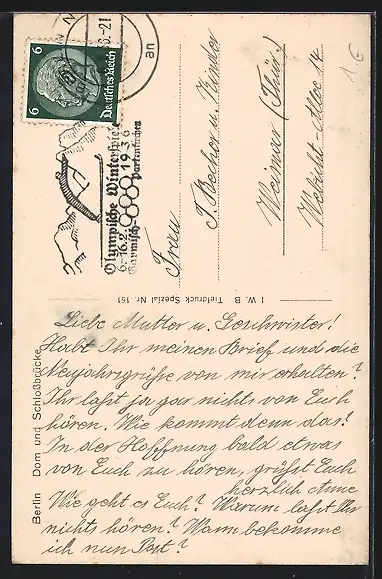 6
6
Deutsches Reich
Olympische Winterspiele
6.-16.2.1936
Garmisch-
Partenkirchen
an
1 €
Frau
J. Becher u. Kinder
Weimar (Thür.)
Webicht-Allee 14
I W. B Tiefdruck Spezial Nr. 161
Berlin Dom und Schloßbrücke
Liebe Mutter u. Geschwister!
Habt Ihr meinen Brief und die
Neujahrsgrüße von mir erhalten?
Ihr laßt ja gar nichts von Euch
hören. Wie kommt denn das!
In der Hoffnung bald etwas
von Euch zu hören, grüßt Euch
herzlich Anne
Wie geht es Euch? Warum laßt Ihr
nichts hören? Wann bekomme
ich nun Post?